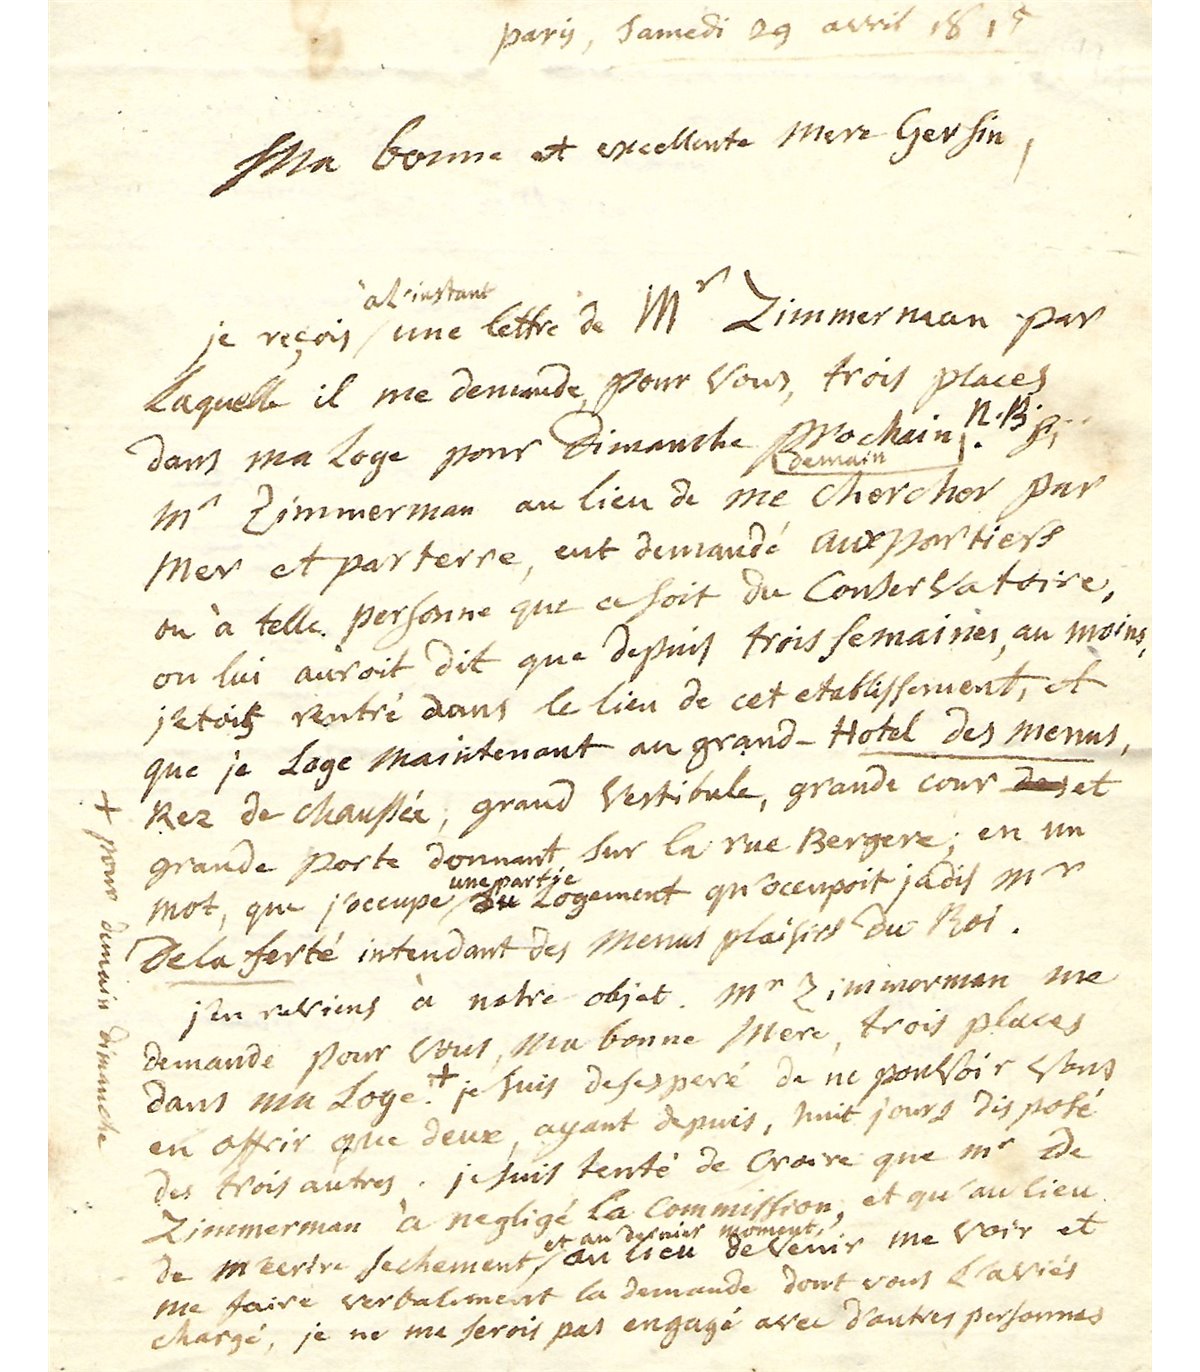 paris, Samedi 29 avril 1815
Ma bonne et excellente mere Gersin,
à l'instant
je reçois / une lettre de Mr Zimmerman par
Laquelle il me demande, pour Vous, trois places
dans ma Loge pour Dimanche prochain. N.B. si
demain
Mr Zimmerman au lieu de me chercher par
Mer et par terre, eut demandé aux portiers
ou à telle personne que ce soit du Conservatoire,
on lui auroit dit que depuis trois semaines, au moins,
j'etois rentré dans le lieu de cet etablissement, et
que je Loge maintenant au grand-Hotel des menus,
Rez de chaussée, grand Vestibule, grande cour et
grande porte donnant sur la rue Bergere; en un
une partie
mot, que j'occupe / du Logement qu'occupoit jadis Mr
De la ferté intendant des Menus plaisirs du Roi.
j'en reviens à notre objet. Mr Zimmerman me
demande pour vous, ma bonne Mere, trois places
dans ma Loge. + je suis desesperé de ne pouvoir vous
en offrir que deux, ayant depuis, huit jours disposé
des trois autres. je suis tenté de croire que mr de
Zimmerman à negligé la commission, et qu'au lieu
et au dernier moment,
de m'ecrire sechement / au lieu de venir me voir et
me faire verbalement la demande dont vous l'aviés
chargé, je ne me serois pas engagé avec d'autres personnes
+ pour demain dimanche